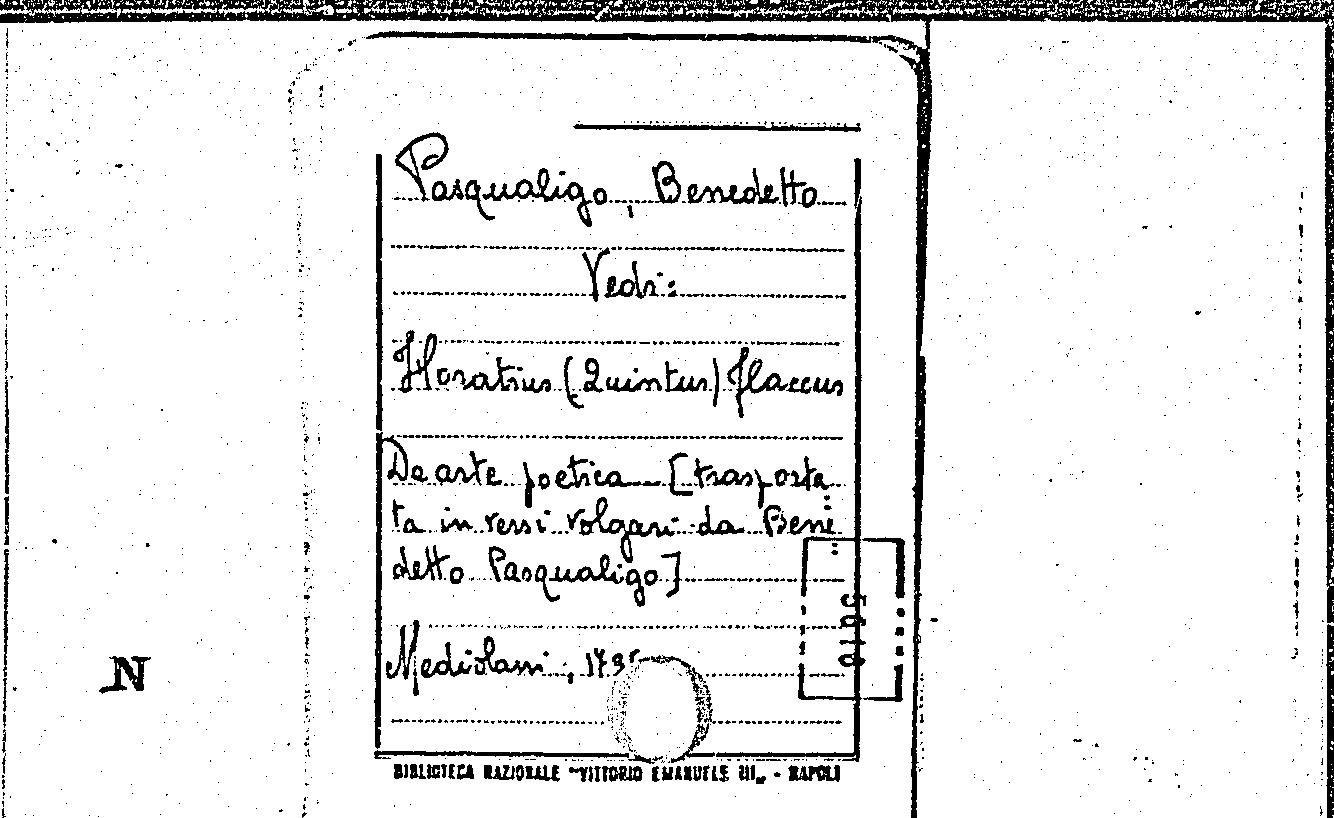 Pasqualigo, Benedetto
Vedi:
Horatius (Quintus) Flaccus
De arte poetica — [trasporta
ta in versi volgari da Bene
detto Pasqualigo]
Mediolani, 1735
N
BIBLIOTECA NAZIONALE "VITTORIO EMANUELE III" - NAPOLI